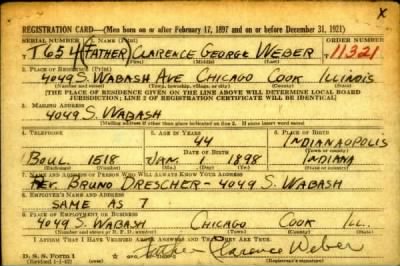 X
REGISTRATION CARD—(Men born on or after February 17, 1897 and on or before December 31, 1921)
SERIAL NUMBER 1. NAME (Print) ORDER NUMBER
T 654 (FATHER) CLARENCE GEORGE WEBER 11321
(First) (Middle) (Last)
2. PLACE OF RESIDENCE (Print)
4049 S. WABASH AVE CHICAGO COOK ILLINOIS
(Number and street) (Town, township, village, or city) (County) (State)
[THE PLACE OF RESIDENCE GIVEN ON THE LINE ABOVE WILL DETERMINE LOCAL BOARD
JURISDICTION; LINE 2 OF REGISTRATION CERTIFICATE WILL BE IDENTICAL]
3. MAILING ADDRESS
4049 S. WABASH
[Mailing address if other than place indicated on line 2. If same insert word same]
4. TELEPHONE 5. AGE IN YEARS 6. PLACE OF BIRTH
44 INDIANAOPOLIS
DATE OF BIRTH
BOUL. 1518 JAN. 1 1898 INDIANA
7. NAME AND ADDRESS OF PERSON WHO WILL ALWAYS KNOW YOUR ADDRESS
REV. BRUNO DRESCHER - 4049 S. WABASH
8. EMPLOYER'S NAME AND ADDRESS
SAME AS 7
9. PLACE OF EMPLOYMENT OR BUSINESS
4049 S. WABASH CHICAGO COOK ILL.
(Number and street or R. F. D. number) (Town) (County) (State)
I AFFIRM THAT I HAVE VERIFIED ABOVE ANSWERS AND THAT THEY ARE TRUE.
D. S. S. FORM 1
(Revised 1-1-42) Father Clarence Weber